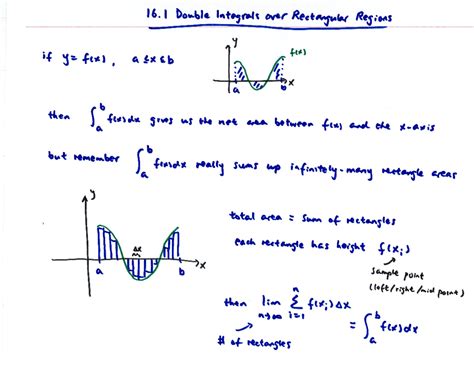 16.1 Double Integrals over Rectangular Regions
if y = f(x), a ≤ x ≤ b
y
f(x)
a b x
then ∫_a^b f(x)dx gives us the net area between f(x) and the x-axis
but remember ∫_a^b f(x)dx really sums up infinitely-many rectangle areas
y
Δx
a b x
total area = sum of rectangles
each rectangle has height f(x_i)
sample point
(left/right/midpoint)
then lim_{n→∞} Σ_{i=1}^{n} f(x_i)Δx
= ∫_a^b f(x)dx
# of rectangles